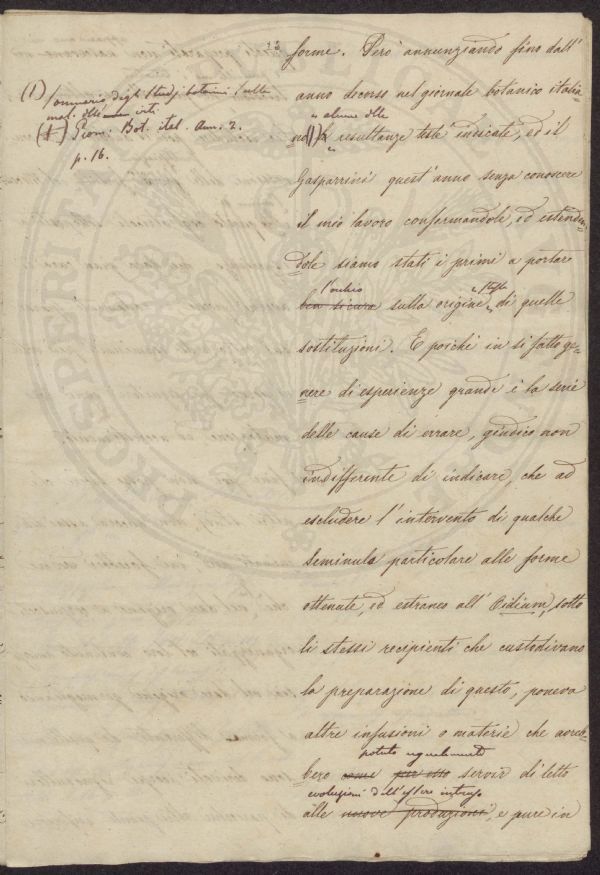 forme. Però annunziando fino dall'
anno decorso nel giornale botanico italia-
no (1) alcune delle resultanze testè indicate, ed il
Gasparrini quest'anno senza conoscere
il mio lavoro confermandole, ed estenden-
dole siamo stati i primi a portare
l'occhio
ben sicura sulla origine di quelle
sostituzioni. E poichè in sì fatto ge-
nere di esperienze grande è la serie
delle cause di errare, giudico non
indifferente di indicare, che ad
escludere l'intervento di qualche
seminula particolare alle forme
ottenute, ed estraneo all'Oidium, sotto
li stessi recipienti che custodivano
la preparazione di questo, poneva
altre infusioni o materie che avreb-
potuto egualmente
bero come per esso servir di letto
evoluzioni dell'essere intruso
alle nuove produzioni, e pure in
(1) Sommario degli Studj botanici sulla
mal.
(1) Giorn: Bot. ital. Ann. 2.
p. 16.